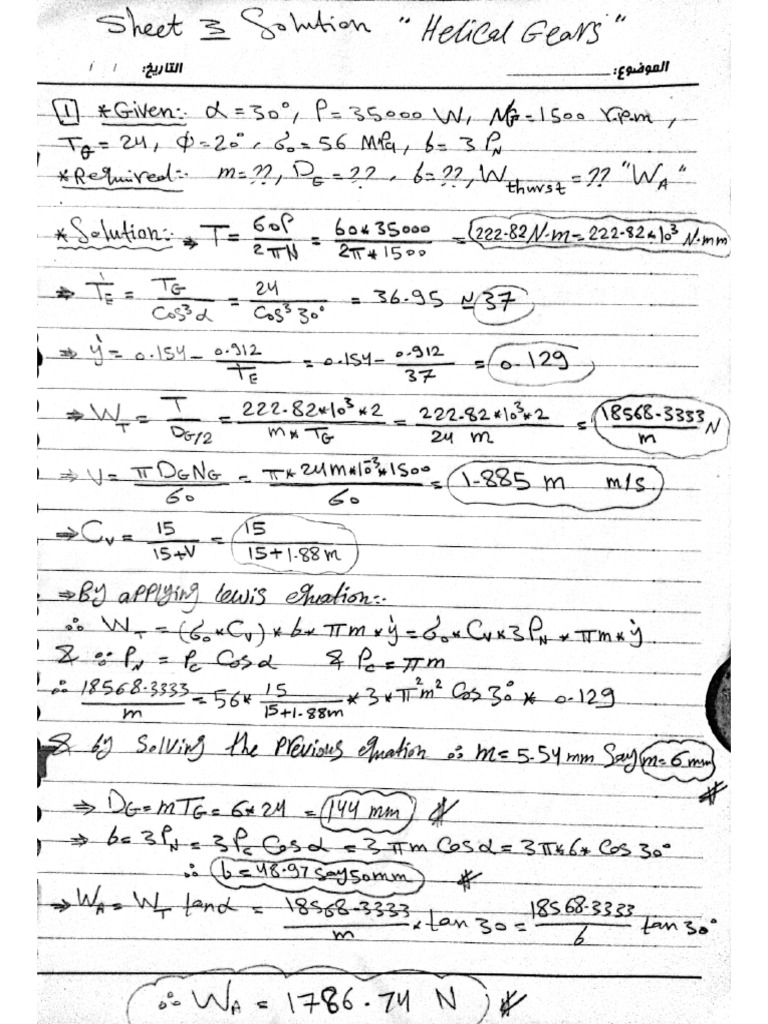 Sheet 3 Solution "Helical Gears"
الموضوع: التاريخ: / /
1 *Given:- α=30°, P=35000 W, N_G=1500 r.p.m,
T_G=24, φ=20°, σ_o=56 MPa, b=3 P_N
*Required:- m=??, D_G=??, b=??, W_thurst=?? "W_A"
*Solution:- ⇒ T = 60P/2πN = 60*35000/2π*1500 = 222.82 N.m = 222.82*10³ N.mm
⇒ T'_E = T_G/Cos³α = 24/Cos³30° = 36.95 ≃ 37
⇒ y' = 0.154 - 0.912/T_E = 0.154 - 0.912/37 = 0.129
⇒ W_T = T/(D_G/2) = 222.82*10³*2/m*T_G = 222.82*10³*2/24 m = 18568.3333/m N
⇒ V = πD_G N_G/60 = π*24m*10⁻³*1500/60 = 1.885 m m/s
⇒ C_v = 15/15+V = 15/15+1.88m
⇒ By applying lewis equation:-
∴ W_T = (σ_o*C_v)*b*πm*y' = σ_o*C_v*3P_N*πm*y'
& ∵ P_N = P_c Cosα & P_c = πm
∴ 18568.3333/m = 56*15/15+1.88m*3*π²m² Cos30°*0.129
& by Solving the Previous equation ∴ m=5.54 mm Say m=6 mm #
⇒ D_G = mT_G = 6*24 = 144 mm #
⇒ b=3P_N = 3P_c Cosα = 3πm Cosα = 3π*6*Cos30°
∴ b=48.97 say 50mm #
⇒ W_A = W_T tanα = 18568.3333/m * tan30 = 18568.3333/6 tan30°
∴ W_A = 1786.74 N #